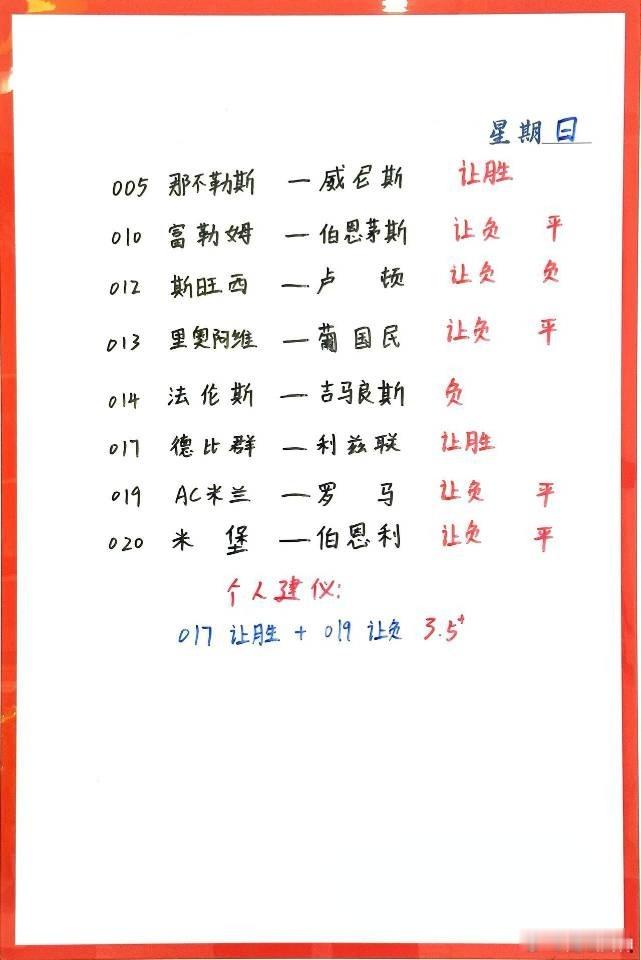 星期日
005 那不勒斯 — 威尼斯 让胜
010 富勒姆 — 伯恩茅斯 让负 平
012 斯旺西 — 卢顿 让负 负
013 里奥阿维 — 葡国民 让负 平
014 法伦斯 — 吉马良斯 负
017 德比群 — 利兹联 让胜
019 AC米兰 — 罗马 让负 平
020 米堡 — 伯恩利 让负 平
个人建仪:
017 让胜 + 019 让负 3.5+